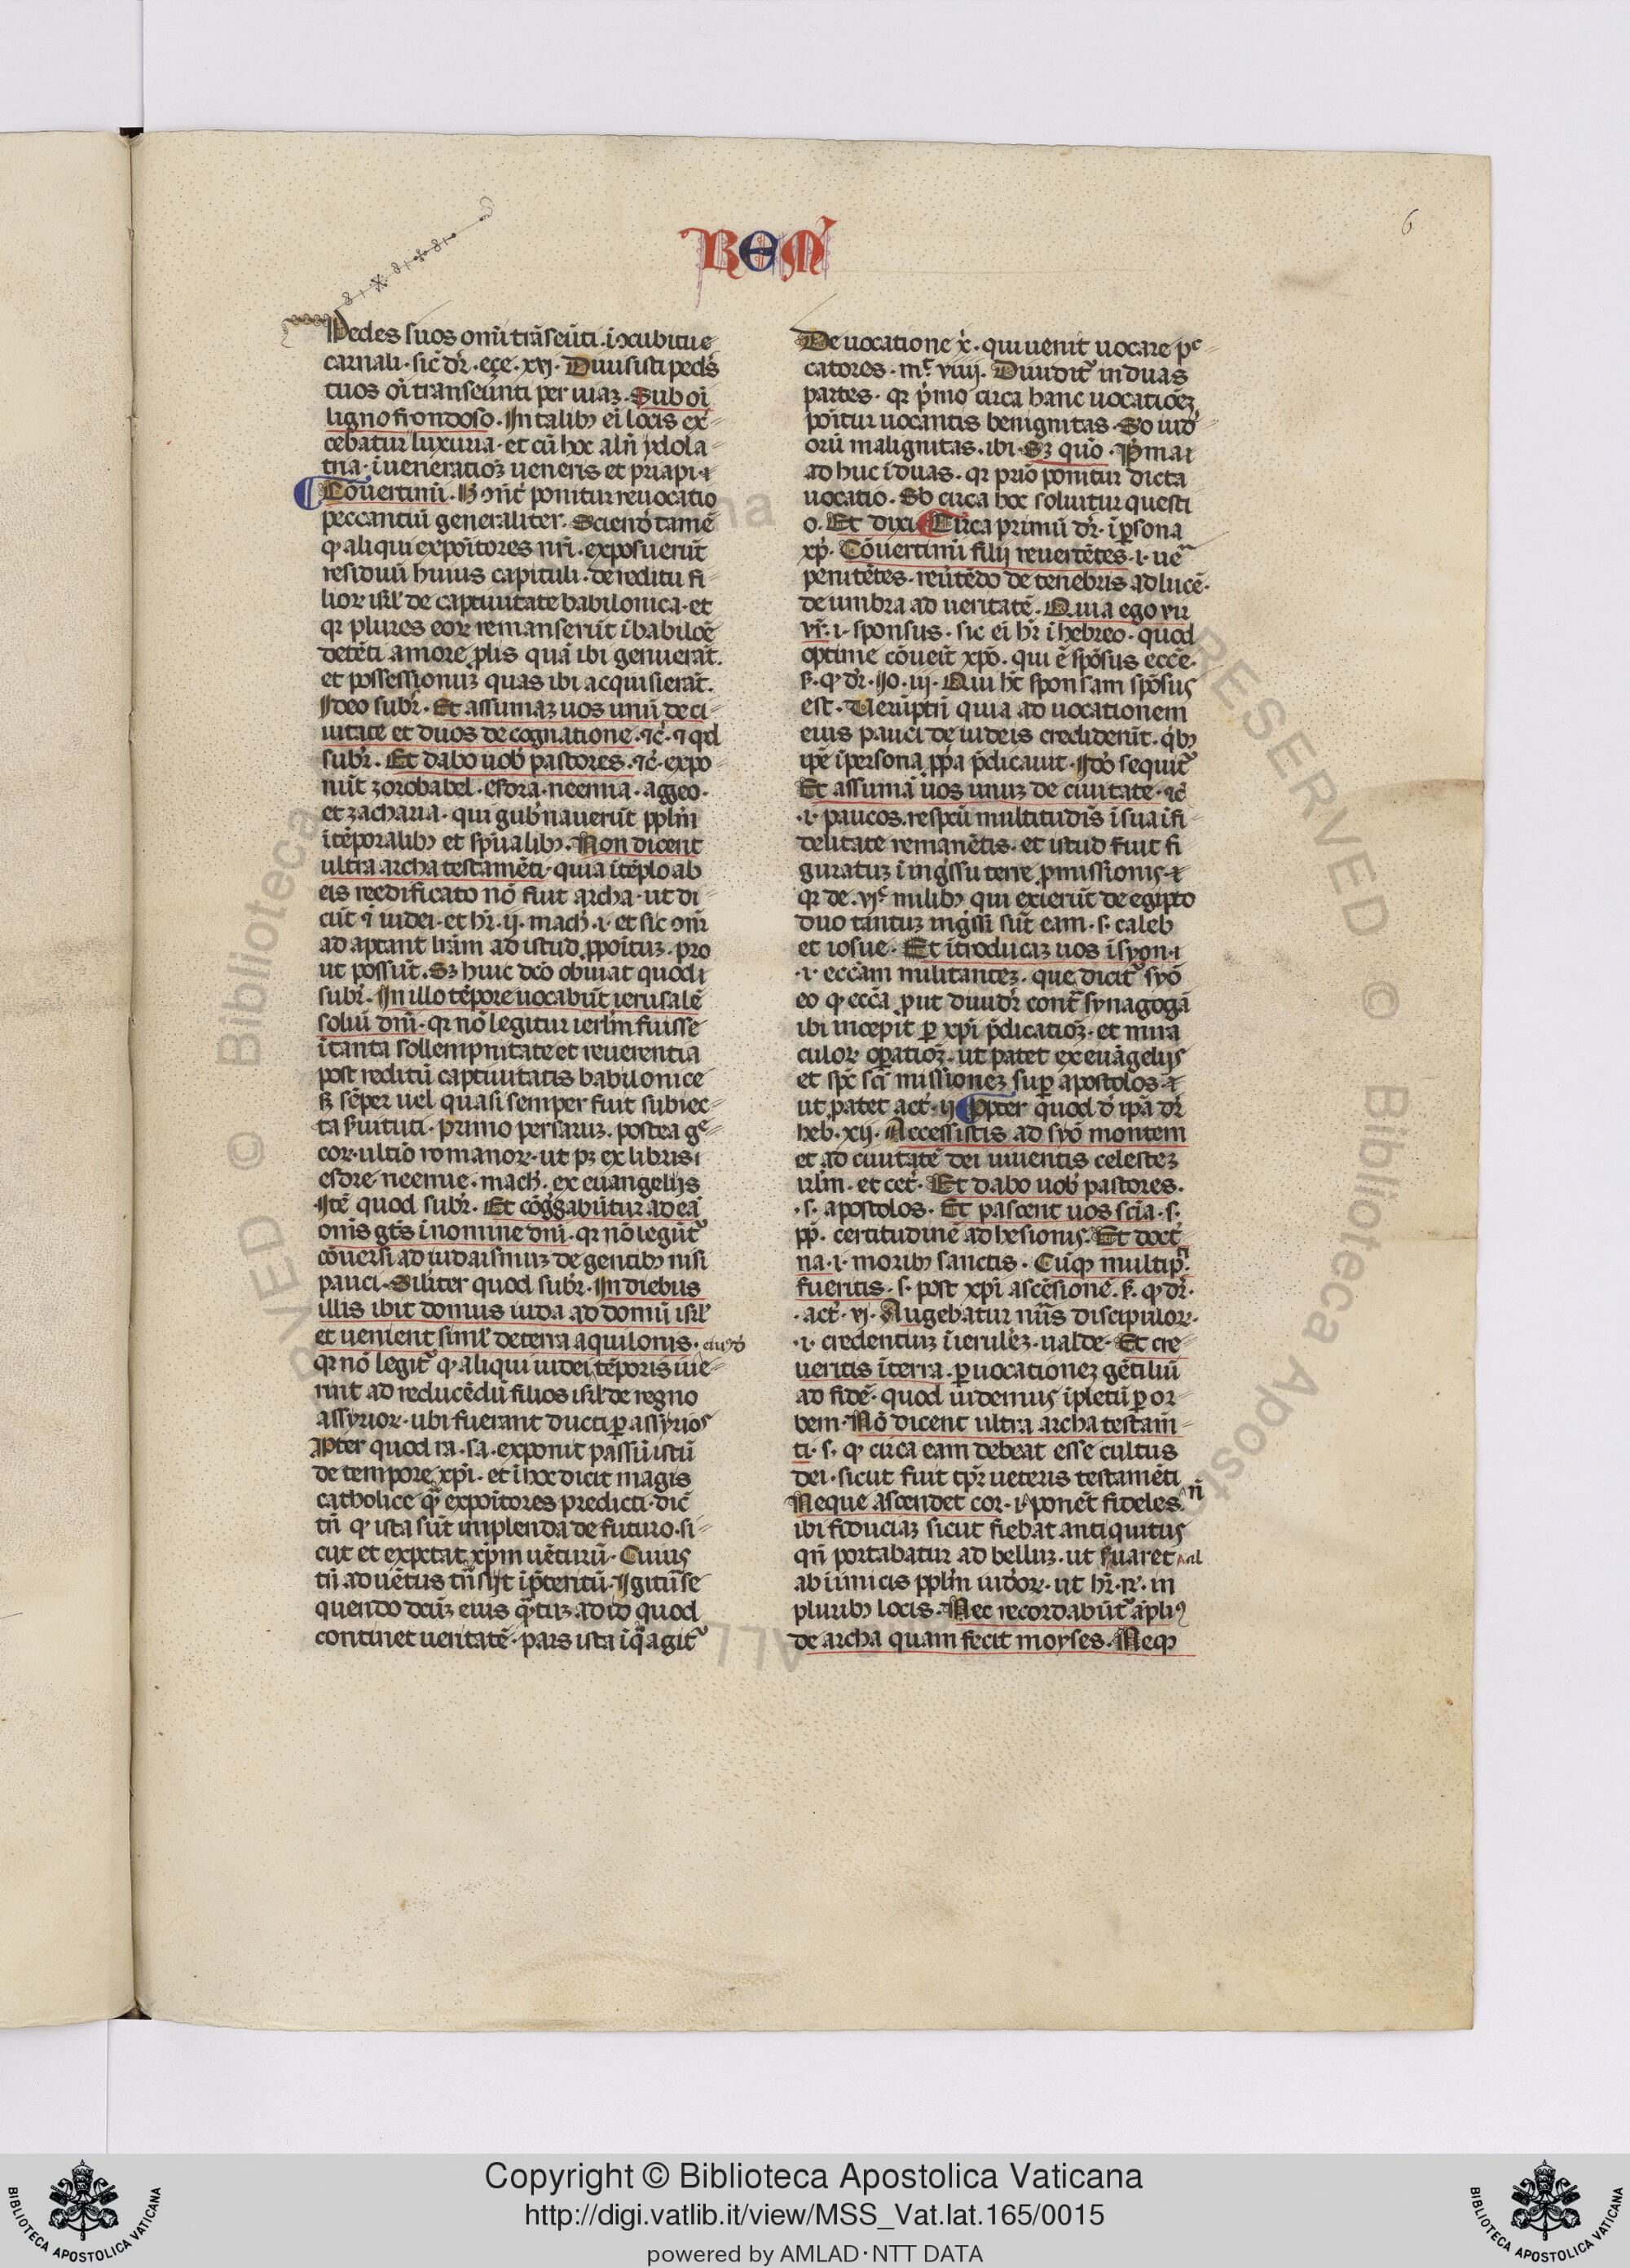 6
REM
Pedes suos om̄i trāseūti. i. ɔcubitu e
carnali. sic̄ dr̄. eçe. xvj. Diuisisti pedes
tuos oī transeūnti per uiaʒ. Sub oī
ligno frondoso. In talibȝ ei locis ex
cebatur luxuria. et cū hoc alr̄ ydola
tria. ī ueneratiōʒ ueneris et priapi. ⁊
Cōuertimī. ponitur reuocatio
peccantiū generaliter. Sciend tamē
ꝙ aliqui expoītores nr̄i. exposuerūt
residuū huius capituli. de reditu fi
lioꝝ isrl̄ de captiuitate babilonica. et
qꝛ plures eoꝝ remanserūt ī babilōē
detēti amore ꝓlis quā ibi genuerāt.
et possessionuʒ quas ibi acquisierāt.
Ideo subr̄. Et assumaʒ uos unū de ci
uitate et duos de cognatione. ⁊c̄. ⁊ qd
subr̄. Et dabo uob̄ pastores. ⁊c̄. expo
nūt zorobabel. esdra. neemia. aggeo.
et zacharia. qui gub̄nauerūt pplm̄
ītēporalibȝ et spūalibȝ. Non dicent
ultra archa testamēti. quia ī tēplo ab
eis reedificato nō fuit archa. ut di
cūt ⁊ iudei. et hr̄. ij. mach̄. i. et sic
ad aptant lr̄am ad istud ꝓpoītuʒ. pro
ut possūt. Sʒ huic dcō obuiat quod
subr̄. In illo tēpore uocabūt ierusalē
soliū dn̄i. qꝛ nō legitur ierlm̄ fuisse
ī tanta sollempnitate et reuerentia
post reditū captiuitatis babilonice
sʒ sēper uel quasi semper fuit subiec
ta s̄uituti. primo persaruʒ. postea ge
coꝝ. ultīo romanoꝝ. ut pʒ ex libris
esdre. neemie. mach̄. ex euangelijs
Itē quod subr̄. Et cōg̃gabūtur ad eā
om̄s gn̄s ī nomine dn̄i. qꝛ nō legūtᷣ
cōuersi ad iudaismuʒ de gentibȝ nisi
pauci. Siliter quod subr̄. In diebus
illis ibit domus iuda ad domū isrl̄
et uenient simul̄ de terra aquilonis.
qꝛ nō legitᷣ ꝙ aliqui iudei tēporis iue
rint ad reducēdū filios isrl̄ de regno
assyrioꝝ. ubi fuerant ducti ꝑ assyrios
Ꝓpter quod ra. sa. exponit passū istū
de tempore xp̄i. et ī hoc dicit magis
catholice qᷓ expoītores predicti. dic̄
tn̄ ꝙ ista sūt implenda de futuro. si
cut et expctat xp̄m uēturū. Cuius
tn̄ aduētus iā p̄teritū. Igitur se
quendo dcm̄ eius qᷓtuʒ ad id quod
continet ueritatē. pars ista ī qᷓ agitᷣ
De uocatione x̄. qui uenit uocare pc
catores. mt̄ viiij. Diuiditᷣ in duas
partes. qꝛ p̄mo circa hanc uocatiōeʒ
poītur uocantis benignitas. So iud
orū malignitas. ibi. Sʒ quō. P̄ma ⁊
ad huc ī duas. qꝛ priō ponitur dicta
uocatio. So circa hoc soluitur questi
o. Et dixi. Circa primū dr̄. ī ꝑsona
xp̄i. Cōuertimī filij reuertētes. i. ue
penitētes. reūtēdo de tenebris ad lucē.
de umbra ad ueritatē. Quia ego vir
vr̄. i. sponsus. sic ei hr̄ ī hebreo. quod
optime cōueit xpō. qui ē spōsus eccē.
s. ꝙ dr̄. Io. iij. Qui ht̄ sponsam spōsus
est. Ueruptn̄ quia ad uocationem
eius pauci de iudeis crediderūt. qbȝ
ipē ī persona ꝓpa p̄dicauit. Ido sequitᷣ
Et assumā uos unuʒ de ciuitate. ⁊c̄
.i. paucos. respcū multitudīs ī sua ifi
delitate remanētis. et istud fuit fi
guratuʒ ī ing̃ssu terre ꝓmissionis. ⁊
qꝛ de. vjc milibȝ qui exierūt de egipto
duo tantuʒ ing̃ssi sūt eam. s. caleb
et iosue. Et ītroducaʒ uos ī syon. ⁊
.i. eccām militanteʒ. que dicitᷣ syō
eo ꝙ eccā ꝓut diuidr̄ contᷓ synagogā
ibi incepit ꝑ xp̄i p̄dicatiōʒ. et mira
culoꝝ oꝑatiōʒ. ut patet ex euāgelijs
et spc̄ sc̄i missioneʒ suꝑ apostolos. ⁊
ut patet act̄. ij. Ꝓpter quod d ipā dr̄
heb. xij. Accessistis ad syō montem
et ad ciuitatē dei uiuentis celesteʒ
irlm̄. et cet̄. Et dabo uob̄ pastores.
.s. apostolos. Et pascent uos scīa. s.
ꝓp. certitudinē adhesionis. Et doct̄
na. i. moribȝ sanctis. Cūqȝ multip.
fueritis. s. post xp̄i ascēsionē. s. ꝙ dr̄.
act̄. vj. Augebatur nūs discipuloꝝ.
.i. credentiuʒ ī ierulēʒ. ualde. Et cre
ueritis ī terra. ꝑ uocationeʒ gētiliū
ad fidē. quod uidemus ī pletū ꝑ or
bem. Nō dicent ultra archa testam̄
ti. s. ꝙ circa eam debeat esse cultus
dei. sicut fuit tp̄r ueteris testamēti
Neque ascendet cor. i. ponēt fideles n̄
ibi fiduciaʒ sicut fiebat antiquitus
qn̄ portabatur ad belluʒ. ut s̄uaret isrl
ab iīmicis pplm̄ iudoꝝ. ut hr̄. rꝝ. in
pluribȝ locis. Nec recordabūtᷣ ampliꝰ
de archa quam fecit moyses. Neqȝ
RESERVED © Biblioteca Apostolica
Copyright © Biblioteca Apostolica Vaticana
http://digi.vatlib.it/view/MSS_Vat.lat.165/0015
powered by AMLAD·NTT DATA
BIBLIOTECA APOSTOLICA VATICANA
BIBLIOTECA APOSTOLICA VATICANA